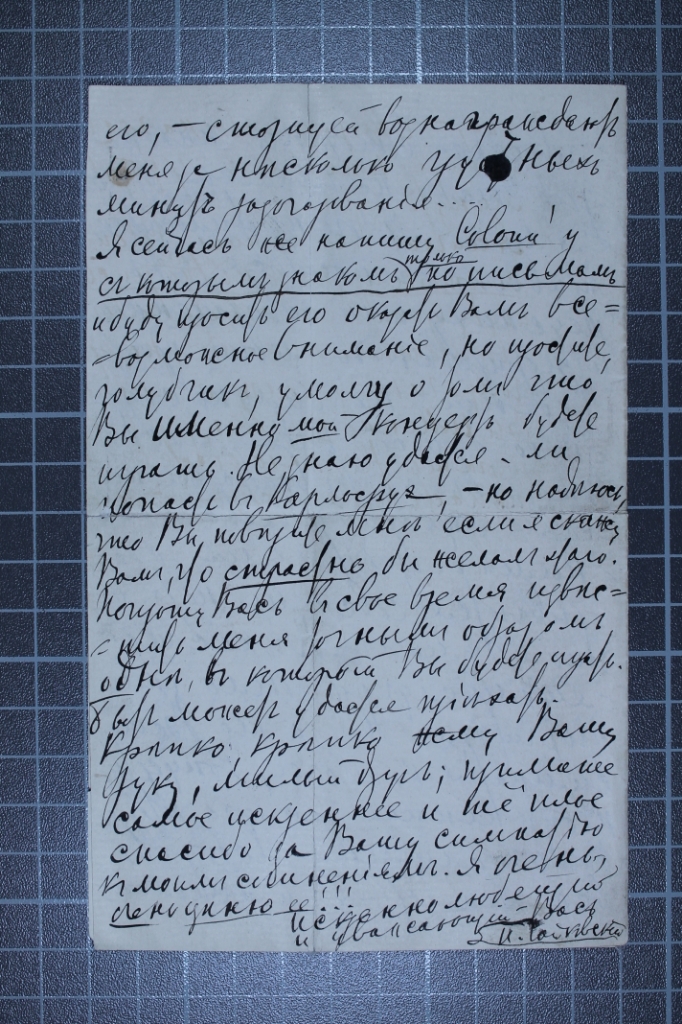 его, – сторицей вознаграждаютъ
меня за нѣсколько чудныхъ
минутъ
Я сейчасъ же напишу Colonn'у
съ которымъ знакомъ только по письмамъ
и буду просить его оказать Вамъ все=
=возможное вниманіе, но простите,
голубчикъ, умолчу о томъ что,
Вы именно мой Концертъ будете
играть. Не знаю удастся-ли
попасть въ Карлсруэ, – но надѣюсь,
что Вы повѣрите мнѣ если я скажу
Вамъ, что страстно бы желалъ этого.
Попрошу Васъ въ свое время извѣс=
=тить меня точнымъ образомъ
о днѣ, въ который Вы будете играть.
Быть можетъ удастся пріѣхать.
Крѣпко крѣпко жму Вашу
руку, милый другъ; примите
самое искреннее и тёплое
спасибо за Вашу симпатію
къ моимъ сочиненіямъ. Я очень,
очень цѣню ее!!!
Искренно любящій
и уважающій Васъ
П. Чайковскій